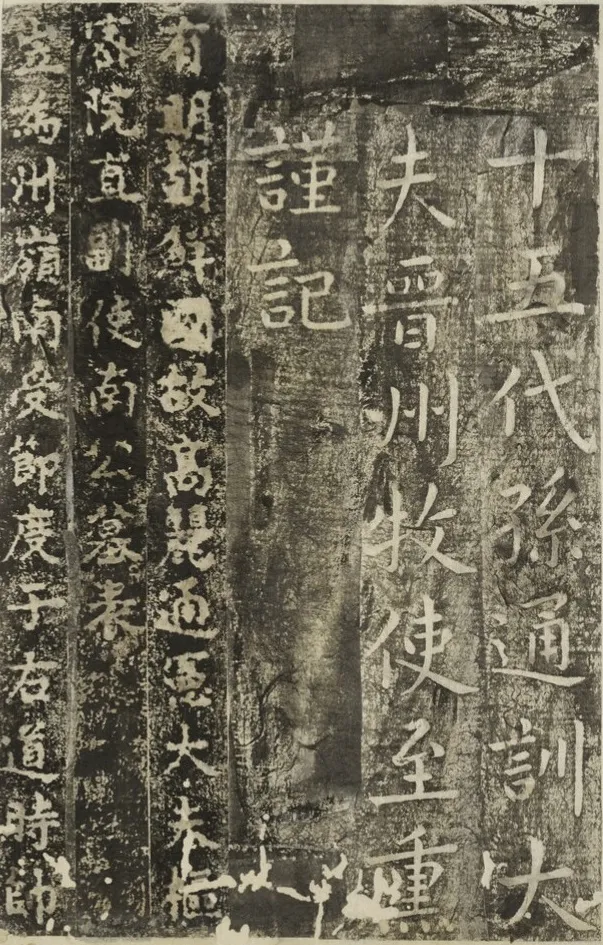 十五代孫通訓大
夫晉州牧使至熏
謹記
有明朝鮮國故高麗通憲大夫樞
密院直副使南公墓表
宜爲州嶺南受節度于右道時帥